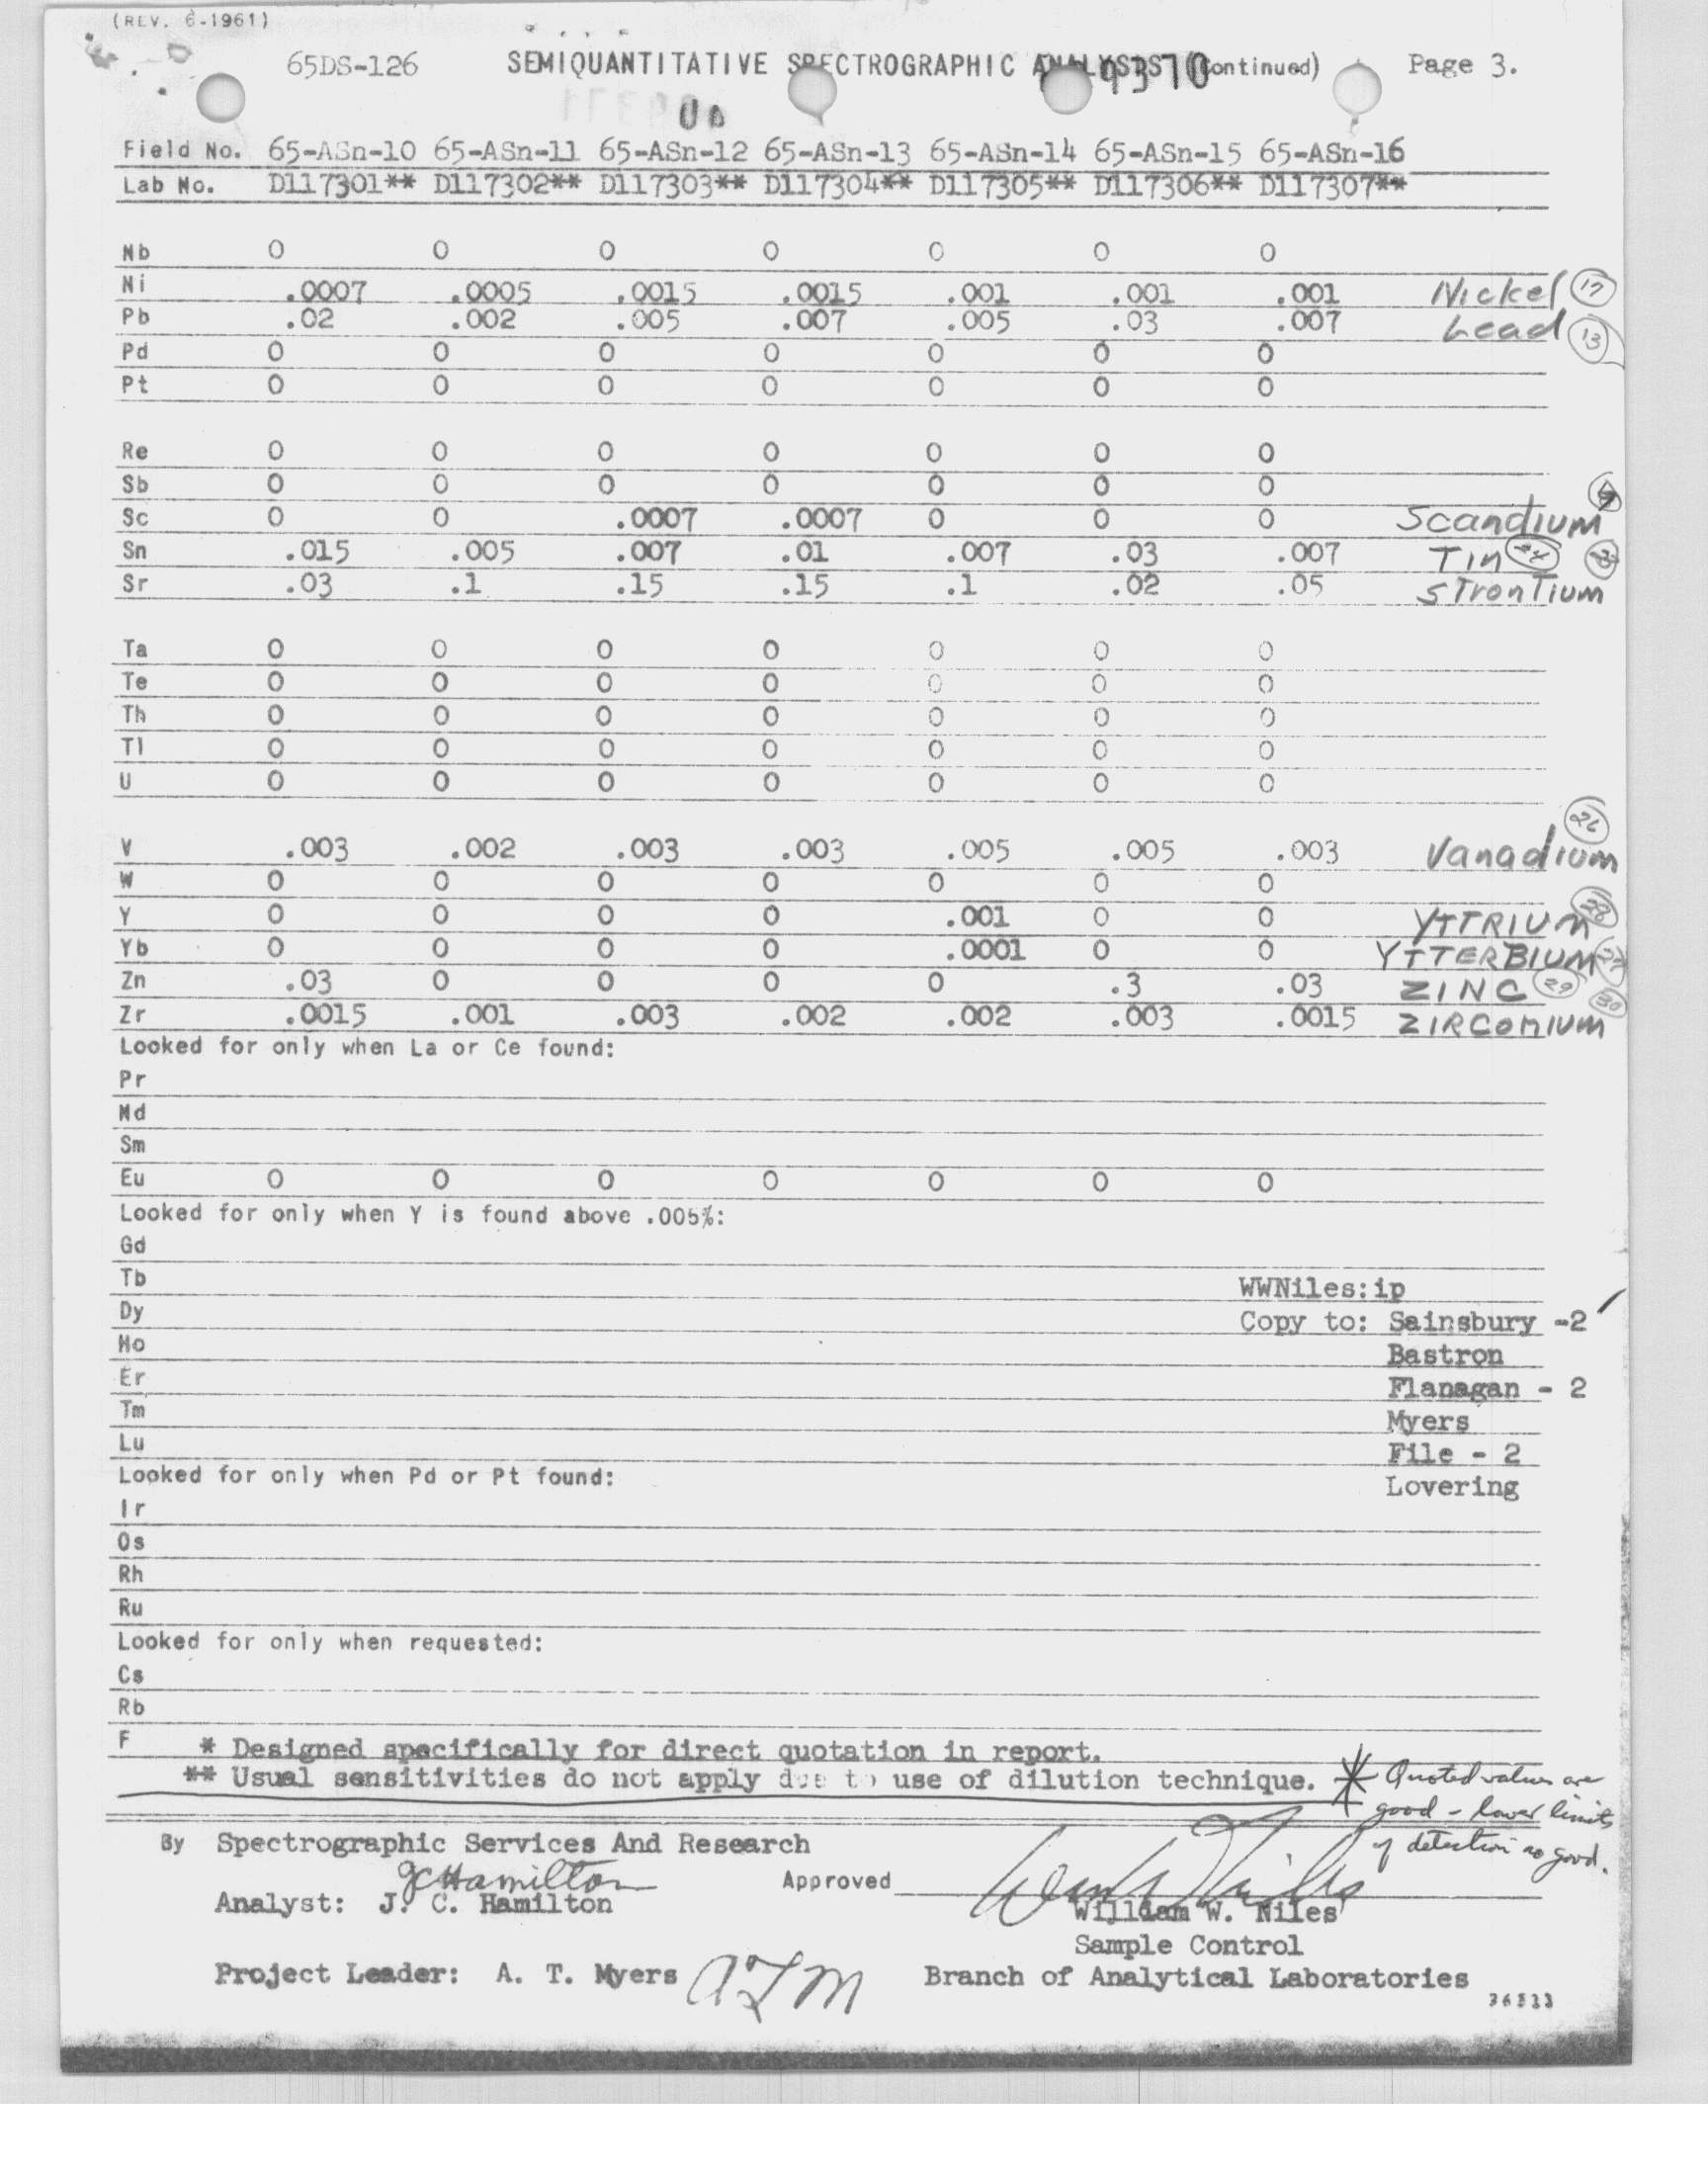 (REV. 6-1961)
65DS-126 SEMIQUANTITATIVE SPECTROGRAPHIC ANALYSIS (Continued) Page 3.
Field No. 65-ASn-10 65-ASn-11 65-ASn-12 65-ASn-13 65-ASn-14 65-ASn-15 65-ASn-16
Lab No. D117301** D117302** D117303** D117304** D117305** D117306** D117307**
Nb 0 0 0 0 0 0 0
Ni .0007 .0005 .0015 .0015 .001 .001 .001 Nickel 17
Pb .02 .002 .005 .007 .005 .03 .007 Lead 13
Pd 0 0 0 0 0 0 0
Pt 0 0 0 0 0 0 0
Re 0 0 0 0 0 0 0
Sb 0 0 0 0 0 0 0
Sc 0 0 .0007 .0007 0 0 0 Scandium
Sn .015 .005 .007 .01 .007 .03 .007 Tin
Sr .03 .1 .15 .15 .1 .02 .05 STronTium
Ta 0 0 0 0 0 0 0
Te 0 0 0 0 0 0 0
Th 0 0 0 0 0 0 0
Tl 0 0 0 0 0 0 0
U 0 0 0 0 0 0 0
26
V .003 .002 .003 .003 .005 .005 .003 Vanadium
W 0 0 0 0 0 0 0
Y 0 0 0 0 .001 0 0 YTTRIUM 28
Yb 0 0 0 0 .0001 0 0 YTTERBIUM 27
Zn .03 0 0 0 0 .3 .03 ZINC 29
Zr .0015 .001 .003 .002 .002 .003 .0015 ZIRCONIUM 30
Looked for only when La or Ce found:
Pr
Nd
Sm
Eu 0 0 0 0 0 0 0
Looked for only when Y is found above .005%:
Gd
Tb WWNiles:ip
Dy Copy to: Sainsbury -2
Ho Bastron
Er Flanagan - 2
Tm Myers
Lu File - 2
Looked for only when Pd or Pt found: Lovering
Ir
Os
Rh
Ru
Looked for only when requested:
Cs
Rb
F * Designed specifically for direct quotation in report.
** Usual sensitivities do not apply due to use of dilution technique. * Quoted values are
good - lower limits
of detection no good.
By Spectrographic Services And Research
JCHamilton
Approved
Analyst: J. C. Hamilton William W. Niles
Sample Control
Project Leader: A. T. Myers ATM Branch of Analytical Laboratories
36533